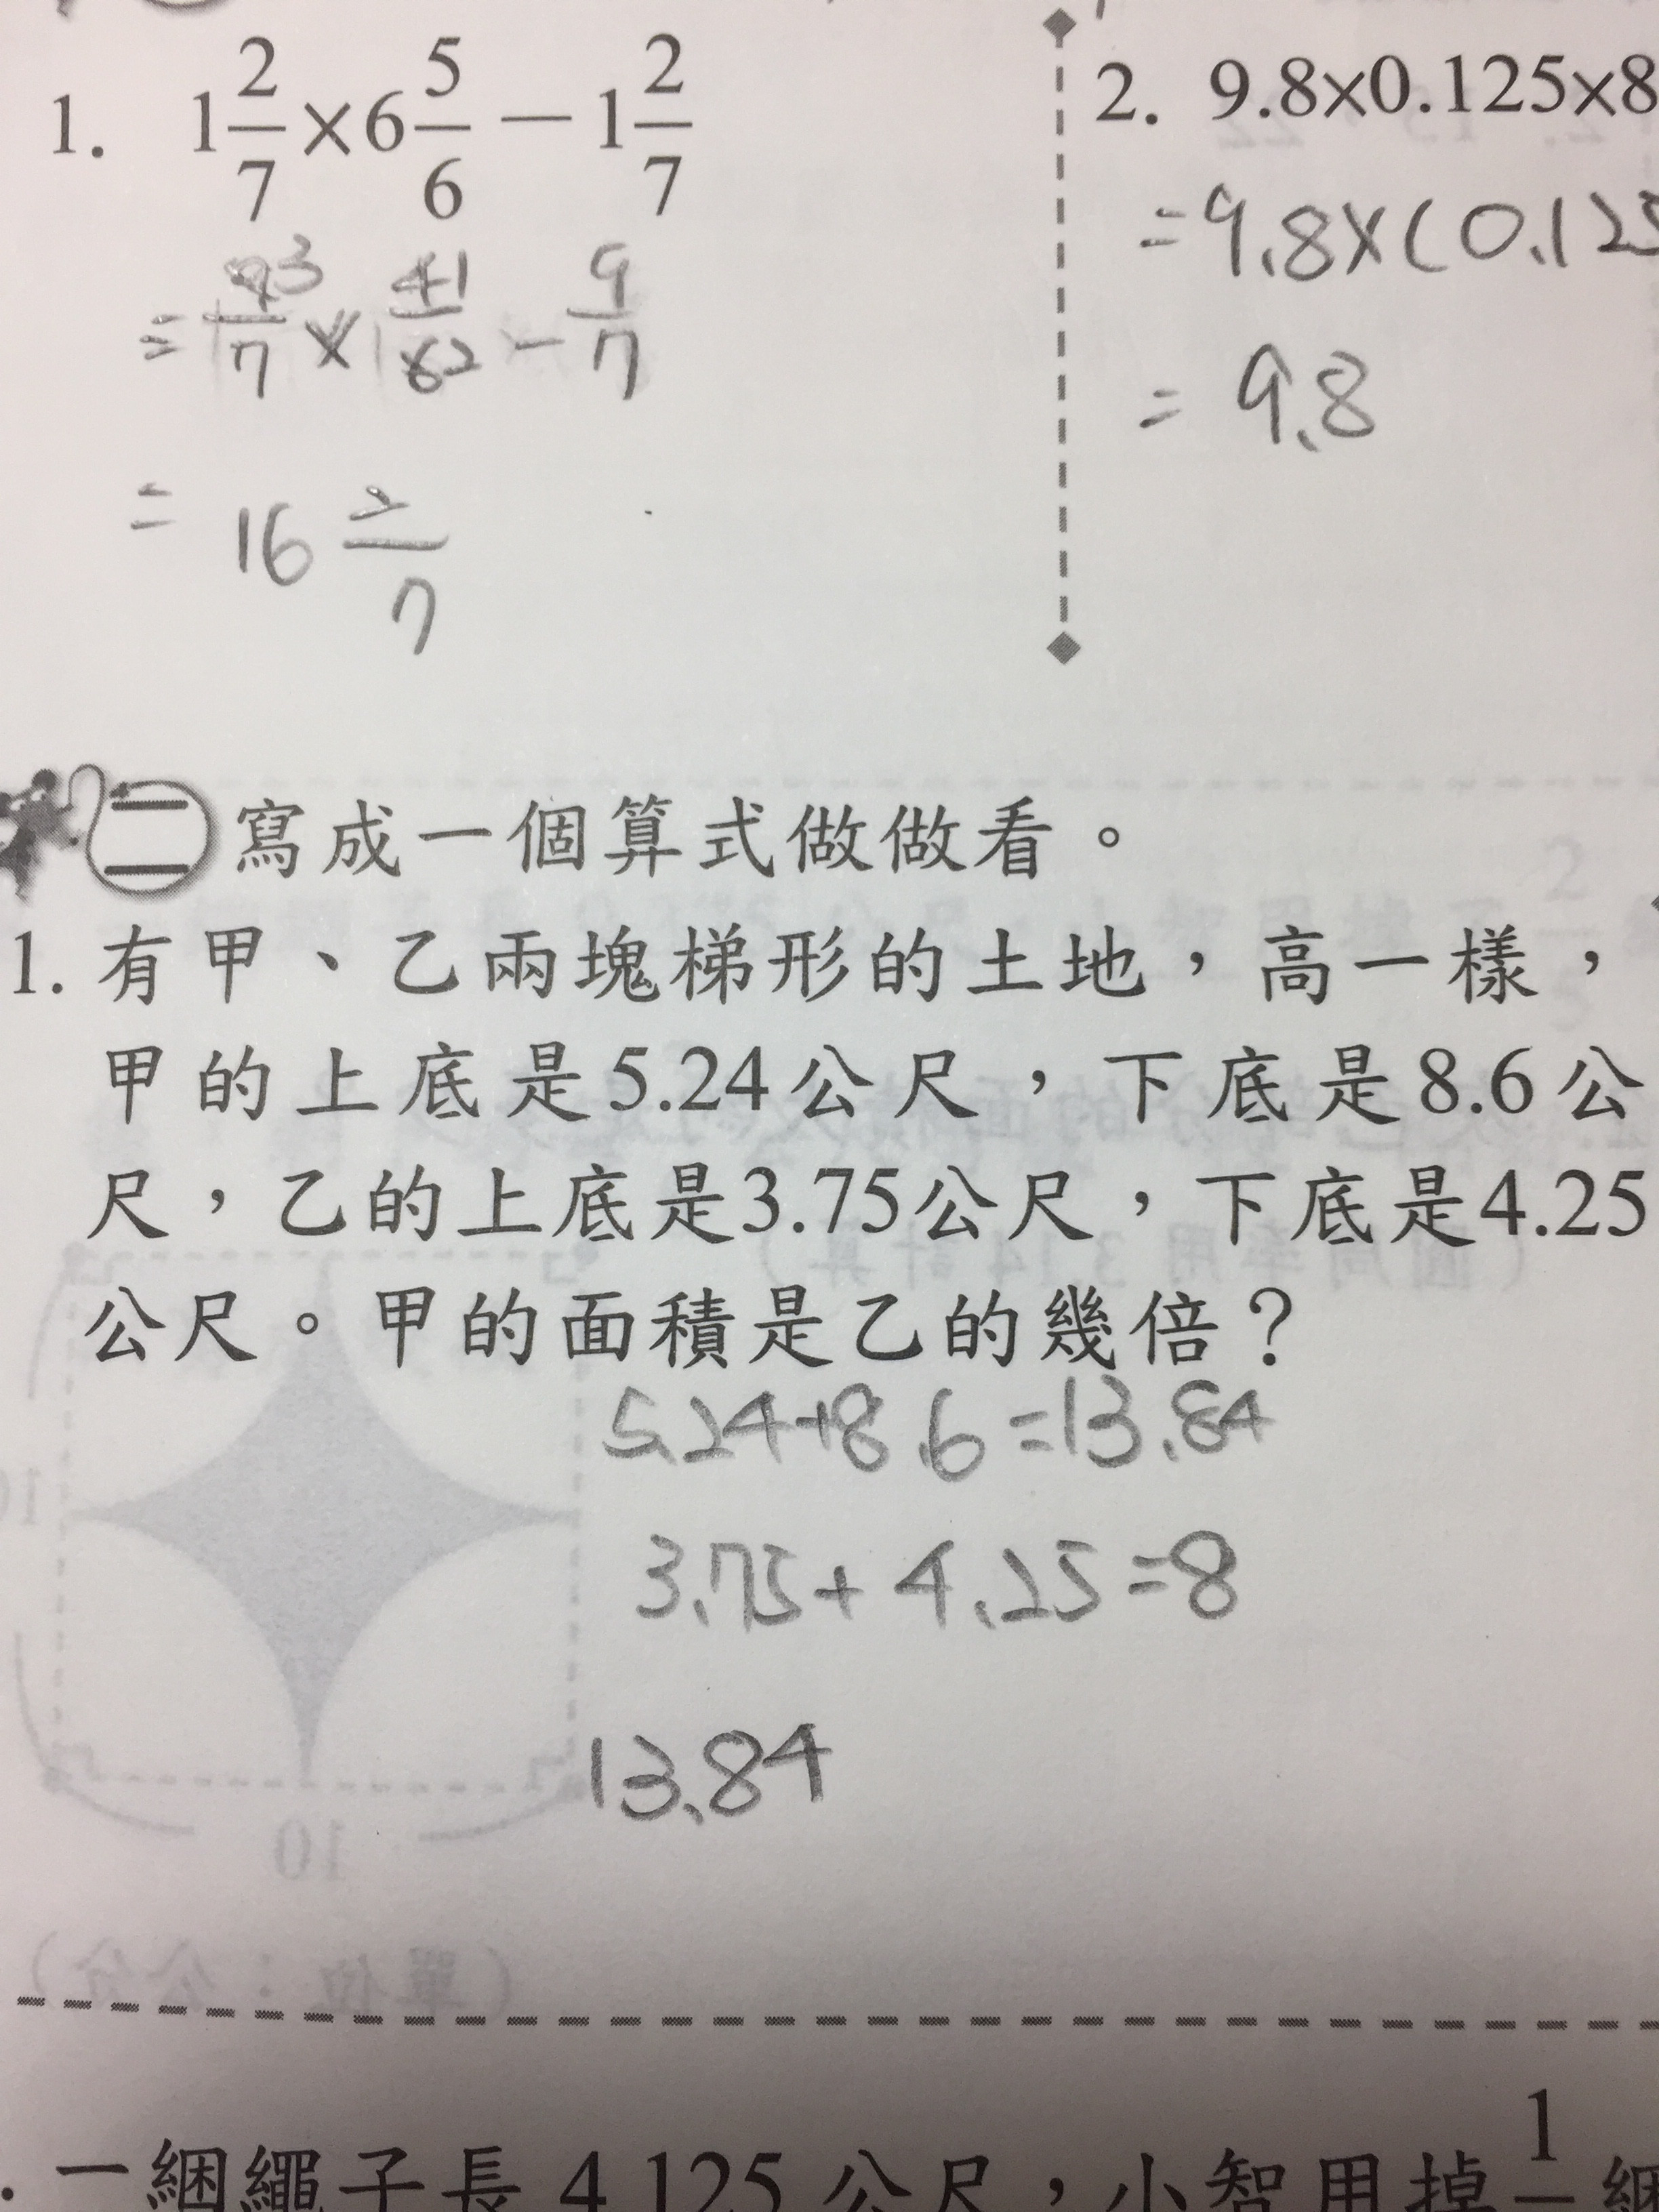 1. 1 2/7 × 6 5/6 − 1 2/7
= 9̸3/7 × 41/6̸2 − 9/7
= 16 2/7
2. 9.8×0.125×8
=9.8×(0.125
= 9.8
二 寫成一個算式做做看。
1. 有甲、乙兩塊梯形的土地，高一樣，
甲的上底是5.24公尺，下底是8.6公
尺，乙的上底是3.75公尺，下底是4.25
公尺。甲的面積是乙的幾倍？
5.24+8.6=13.84
3.75+4.25=8
13.84
10
(單位：公分)
. 一綑繩子長4.125公尺，小智用掉1